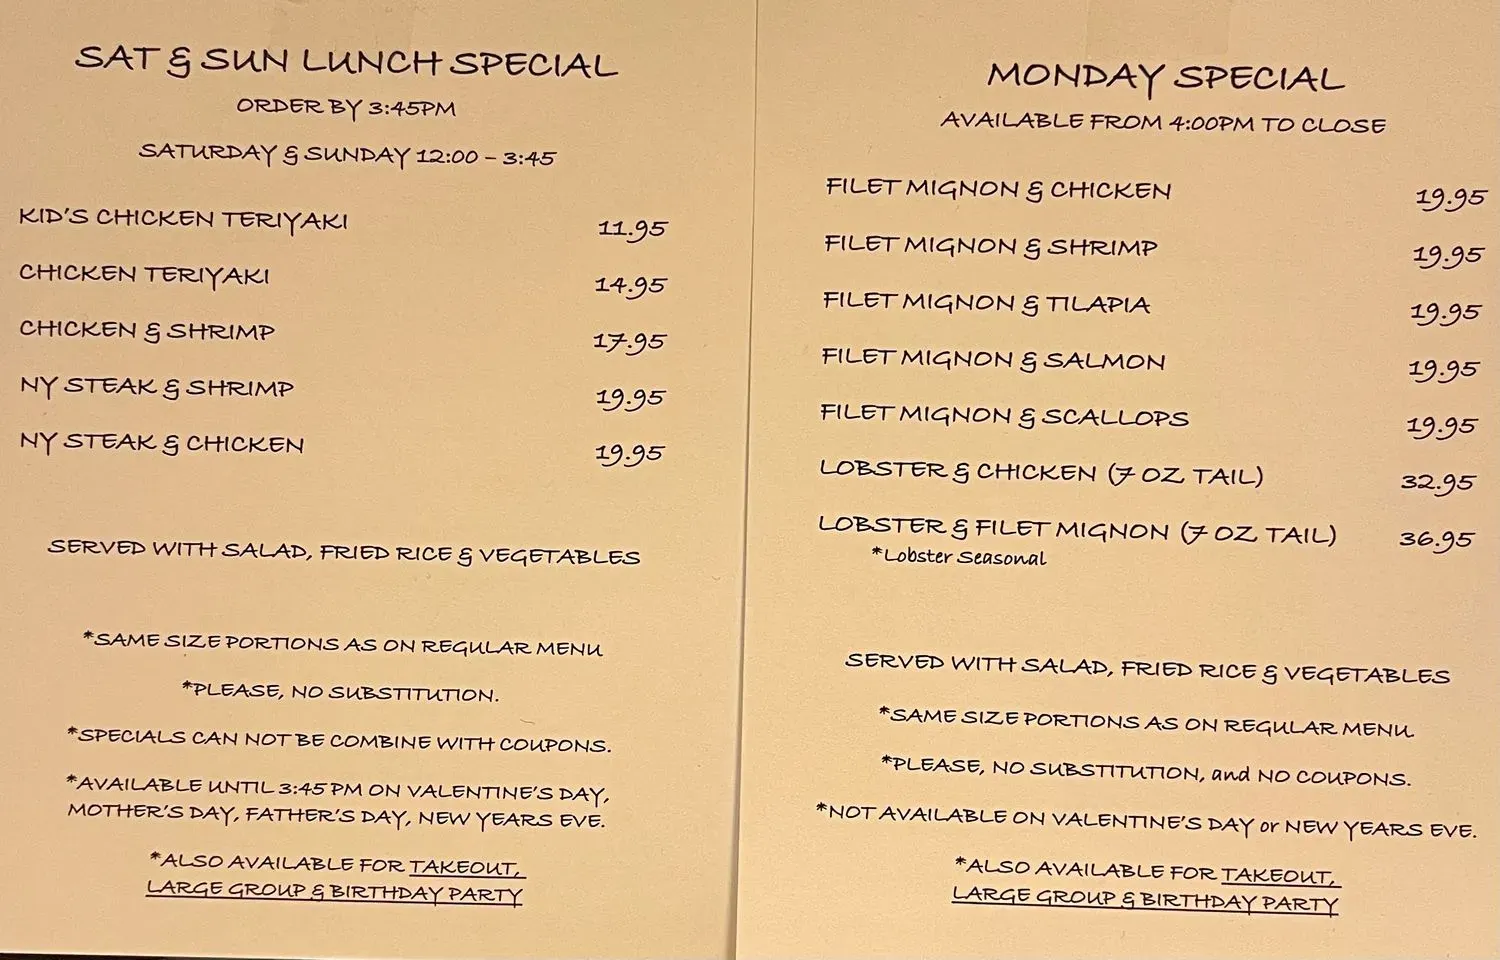 SAT & SUN LUNCH SPECIAL
ORDER BY 3:45PM
SATURDAY & SUNDAY 12:00 - 3:45
KID'S CHICKEN TERIYAKI 11.95
CHICKEN TERIYAKI 14.95
CHICKEN & SHRIMP 17.95
NY STEAK & SHRIMP 19.95
NY STEAK & CHICKEN 19.95
SERVED WITH SALAD, FRIED RICE & VEGETABLES
*SAME SIZE PORTIONS AS ON REGULAR MENU
*PLEASE, NO SUBSTITUTION.
*SPECIALS CAN NOT BE COMBINE WITH COUPONS.
*AVAILABLE UNTIL 3:45 PM ON VALENTINE'S DAY,
MOTHER'S DAY, FATHER'S DAY, NEW YEARS EVE.
*ALSO AVAILABLE FOR TAKEOUT,
LARGE GROUP & BIRTHDAY PARTY
MONDAY SPECIAL
AVAILABLE FROM 4:00PM TO CLOSE
FILET MIGNON & CHICKEN 19.95
FILET MIGNON & SHRIMP 19.95
FILET MIGNON & TILAPIA 19.95
FILET MIGNON & SALMON 19.95
FILET MIGNON & SCALLOPS 19.95
LOBSTER & CHICKEN (7 OZ TAIL) 32.95
LOBSTER & FILET MIGNON (7 OZ TAIL) 36.95
*Lobster Seasonal
SERVED WITH SALAD, FRIED RICE & VEGETABLES
*SAME SIZE PORTIONS AS ON REGULAR MENU
*PLEASE, NO SUBSTITUTION, and NO COUPONS.
*NOT AVAILABLE ON VALENTINE'S DAY or NEW YEARS EVE.
*ALSO AVAILABLE FOR TAKEOUT,
LARGE GROUP & BIRTHDAY PARTY